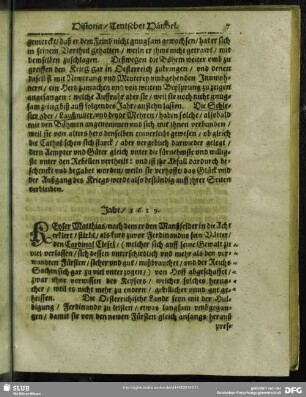 Historia/ Teutscher Händel. 7
gemerckt/ daß er dem Feind nicht gnugsam gewachsen/ hat er sich
in seinem Vortheil gehalten/ weil er ihme nicht getrawt/ mit
demselben zuschlagen. Deßwegen die Böhmen weiter und zu
greiffen den Krieg gar in Oesterreich zubringen/ und
daselbst mit Trennung und Meuterey umbgehenden Inwoh-
nern/ ein Hertz zumachen und von weitem Vorsprung zu zeigen
angefangen: welche Auffruhr aber sie/ weil sie noch nicht gnug-
sam auff folgendes Jahr/ anstehn lassen. Die Schle-
sier aber/ Laußnitzer/ und beyde Mehrern/ haben solche/ alsobald
mit den Böhmen gemein und sich mit ihnen verbunden/
weil sie von alters hero derselben einverleibt gewesen/ ob gleich
die Catholischen sich starck/ aber vergeblich darwider gelegt/
dern Aempter und Güter gleich unter die fürnehmste und willig-
ste unter den Rebellen vertheilt: und ist ihr Abfall dardurch be-
schenckt und begabet worden/ weil sie verhofft/ das Glück und
der Außgang des Kriegs werde also beständig auff ihrer Seiten
verbleiben.
Jahr/ 1619.
Keyser Matthias/ nach dem er den Manßfelder in die Acht
erklert/ stirbt/ als kurtz zuvor Ferdinandus sein Vetter/
den Cardinal Clesel/ (welcher sich auff seine Gewalt zu
viel verlassen/ sich dessen unterschiedlich und mehr als den ver-
wandten Fürsten/ sehr und gut/ mißbrauchet/ und der Reichs-
Sachen sich gar zu viel unterzogen/) von Hoff abgeschaffet/
zwar ohne vorwissen des Keysers/ welcher solches hernä-
cher/ weil es nicht mehr zu endern/ gebillichet und gut ge-
heissen. Die Oesterreichische Lande seyn mit der Hul-
digung/ Ferdinando zu leisten/ etwas langsam umbgegan-
gen/ damit sie von den newen Fürsten gleich anfangs herauß
pres-
SLUB
Wir führen Wissen.
gefördert von der
Deutschen Forschungsgemeinschaft